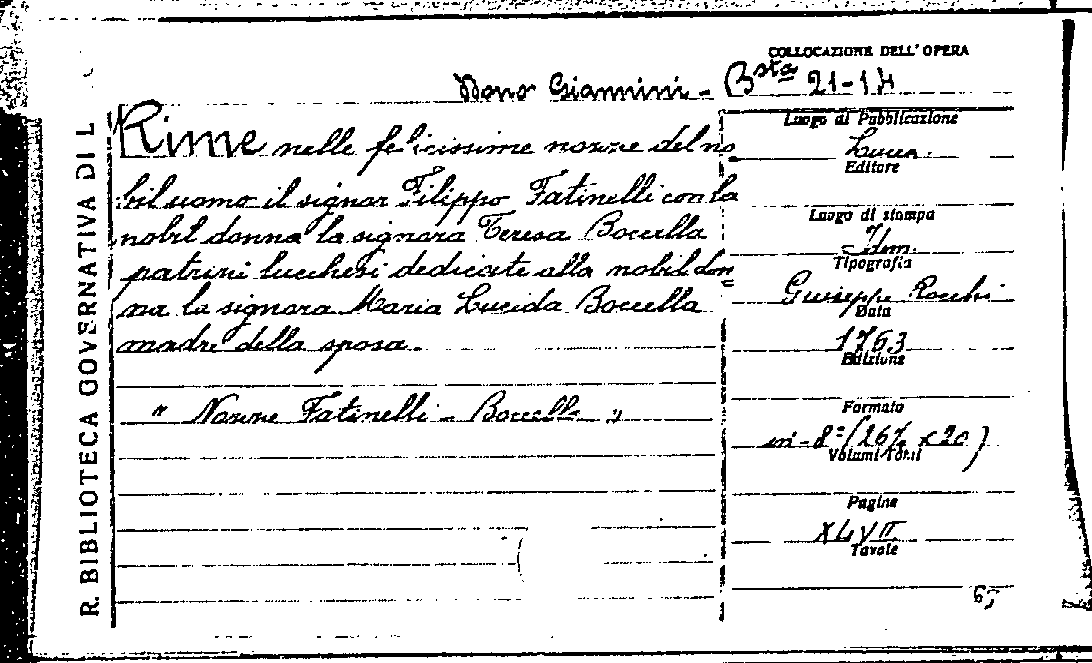 COLLOCAZIONE DELL'OPERA
Dono Giannini - Bsta 21-14
R. BIBLIOTECA GOVERNATIVA DI L
Rime nelle felicissime nozze del no
bil uomo il signor Filippo Fatinelli con la
nobil donna la signora Teresa Boccella
patrizi lucchesi dedicate alla nobil don
na la signora Maria Lucida Boccella
madre della sposa.
" Nozze Fatinelli - Boccella "
Luogo di Pubblicazione
Lucca.
Editore
Luogo di stampa
Idem.
Tipografia
Giuseppe Rocchi
Data
1763
Edizione
Formato
in-8º (26½ x 20)
Volumi Totali
Pagine
XLVII
Tavole